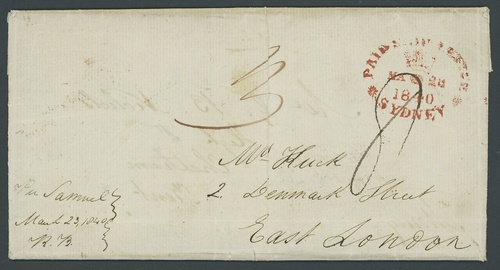 3
PAID
MA 23
1840
SYDNEY
8
Mr. Huck
2 Denmark Street
East London
Per Samuel
March 23, 1840
R. B.